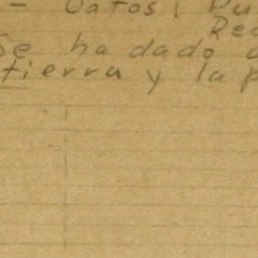 - Datos: Du
Rec
Se ha dado
tierra y la p